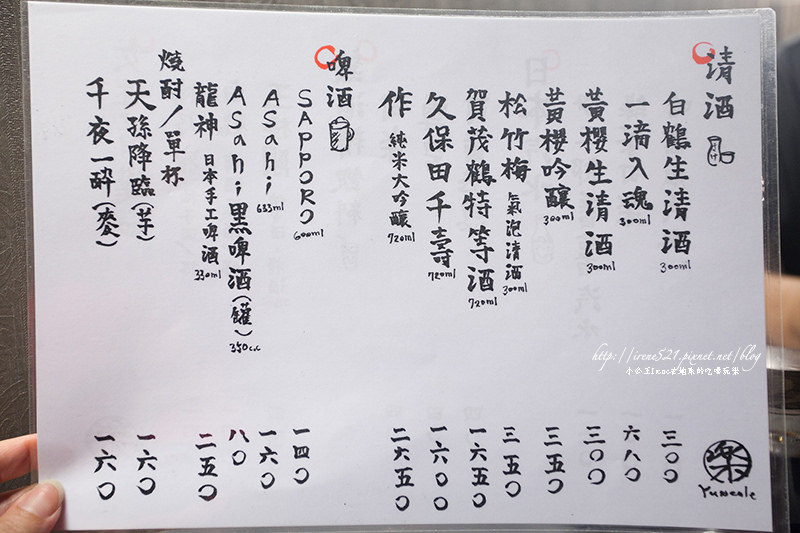 清酒
白鶴生清酒 300ml 一三〇〇
一滴入魂 300ml 一六八〇
黃櫻生清酒 300ml 三〇〇
黃櫻吟釀 300ml 三五〇
松竹梅 氣泡清酒 300ml 三五〇
賀茂鶴特等酒 720ml 一六五〇
久保田千壽 720ml 一六〇〇
作 純米大吟釀 720ml 二六五〇
啤酒
SAPPORO 600ml 一四〇
ASahi 633ml 一六〇
ASahi黑啤酒(罐) 350c.c 八〇
龍神 日本手工啤酒 330ml 二五〇
燒酎/單杯
天孫降臨(芋) 一六〇
千夜一醉(麥) 一六〇
樂
Yumeole
http://irene521.pixnet.net/blog
小公主Irene去趴趴的吃喝玩樂